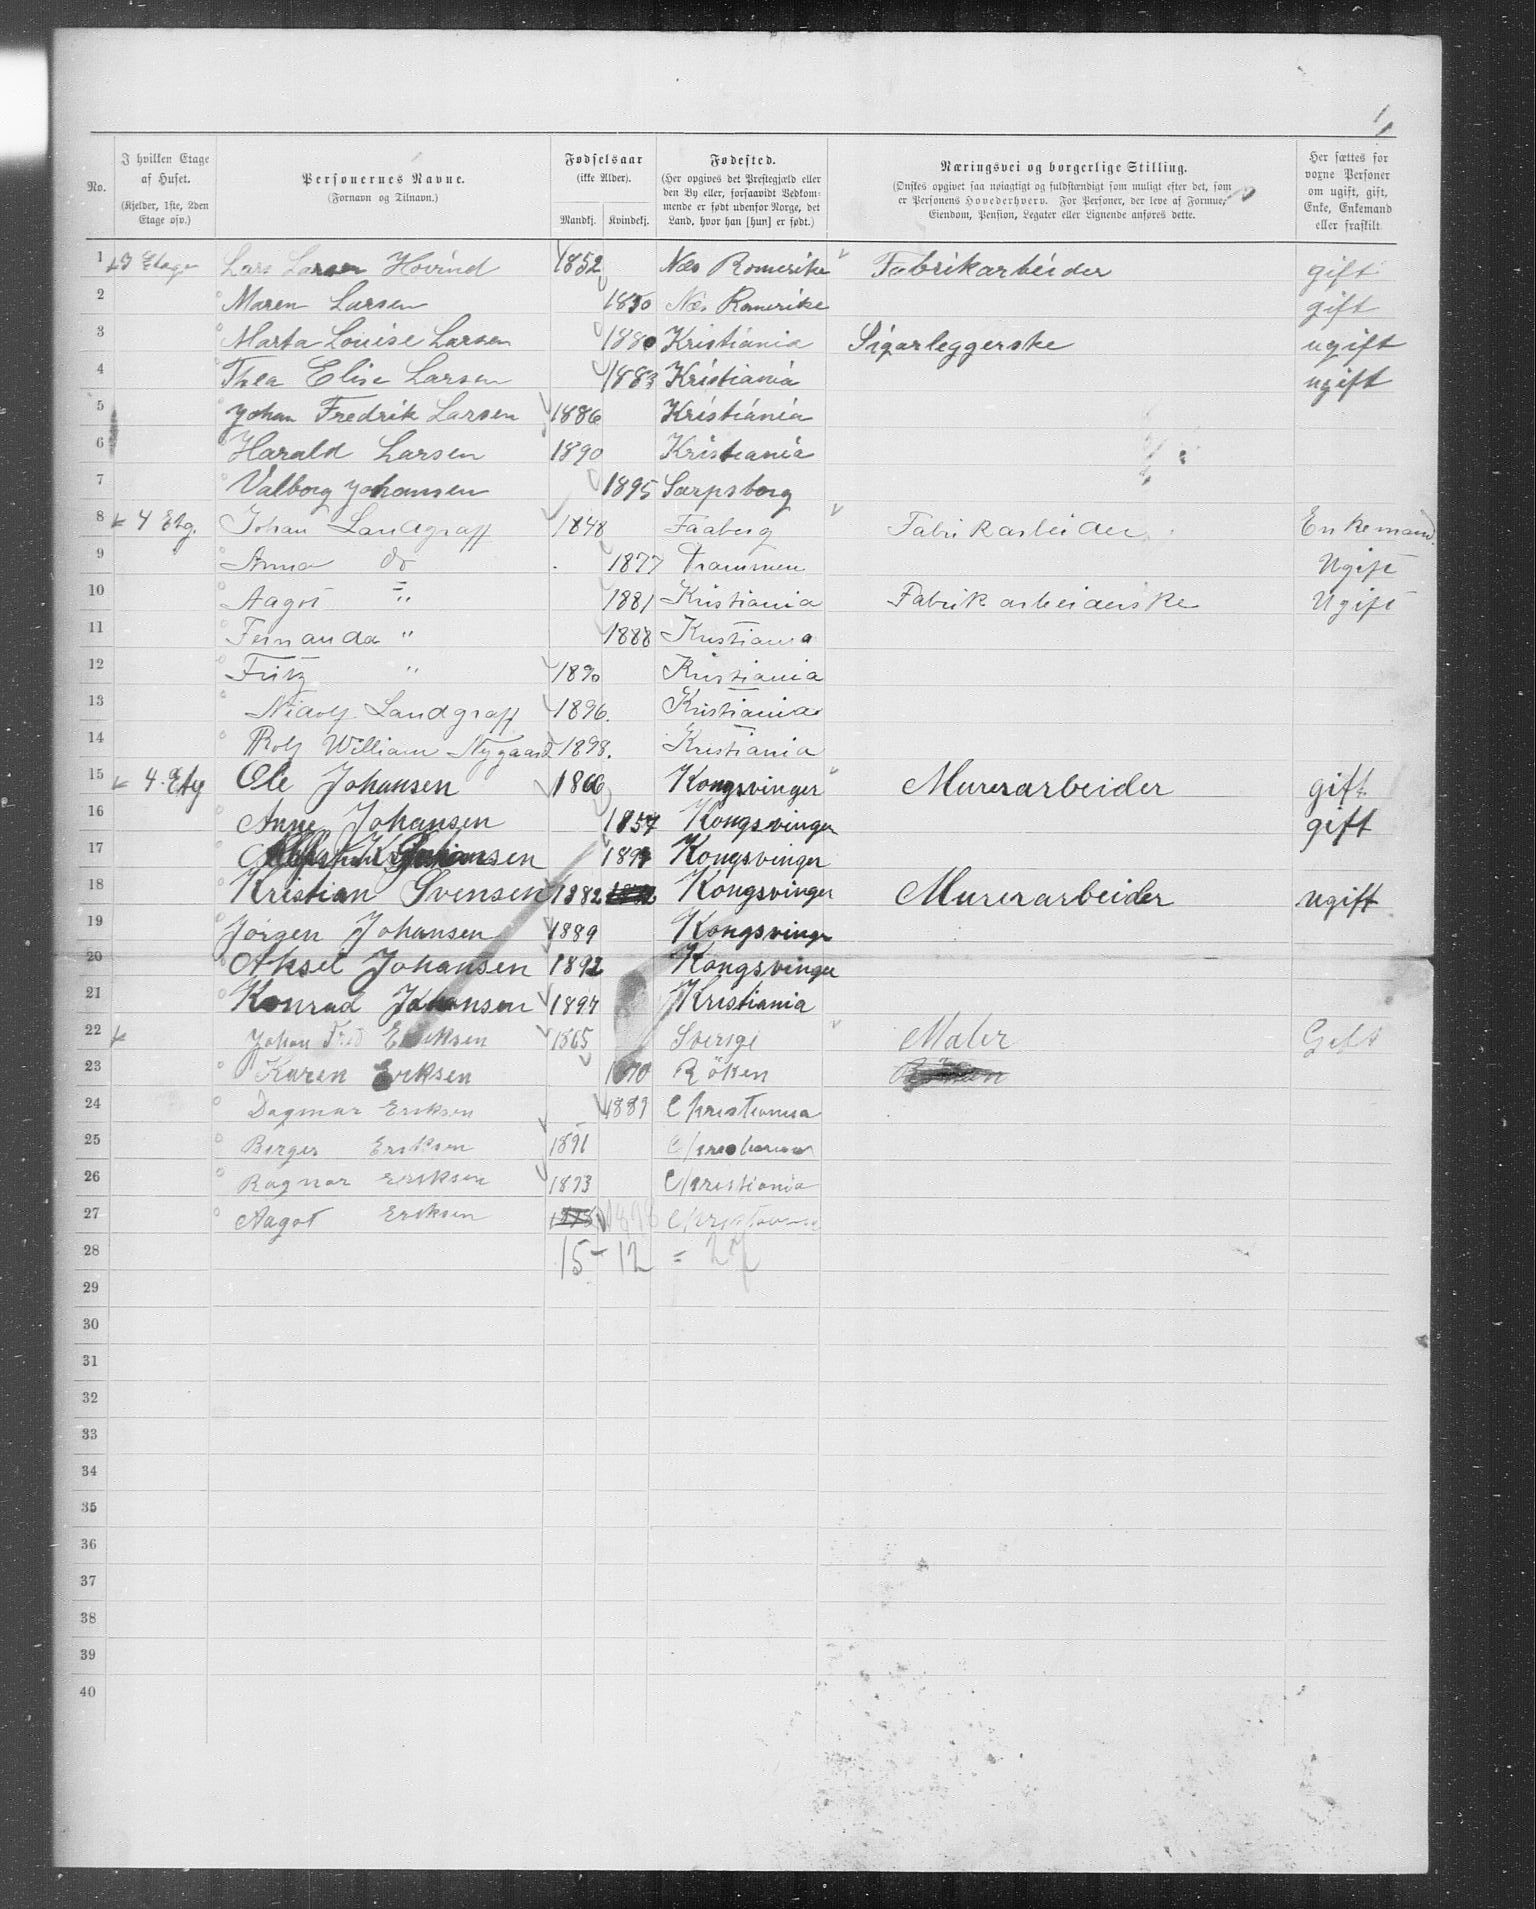 1
No.
I hvilken Etage af Huset.
(Kjelder, 1ste, 2den Etage osv.)
Personernes Navne.
(Fornavn og Tilnavn.)
Fødselsaar
(ikke Alder).
Mandkj. Kvindekj.
Fødested.
(Her opgives det Prestegjæld eller den By eller, forsaavidt Vedkommende er født udenfor Norge, det Land, hvor han [hun] er født.)
Næringsvei og borgerlige Stilling.
(Ønskes opgivet saa nøiagtigt og fuldstændigt som muligt efter det, som er Personens Hovederhverv. For Personer, der leve af Formue, Eiendom, Pension, Legater eller Lignende anføres dette.
Her sættes for voxne Personer om ugift, gift, Enke, Enkemand eller fraskilt.
1 Etage Lars Larsen Hovind 1852 Næs Romerike Fabrikarbeider gift
2 Maren Larsen 1850 Næs Romerike gift
3 Marta Louise Larsen 1880 Kristiania Sigarleggerske ugift
4 Thea Elise Larsen 1883 Kristiania ugift
5 Johan Fredrik Larsen 1886 Kristiania
6 Harald Larsen 1890 Kristiania
7 Valborg Johansen 1895 Sarpsborg
8 4 Etg. Johan Landgraff 1848 Faaberg Fabrikarbeider Enkemand.
9 Anna do 1877 Drammen Ugift
10 Aagot " 1881 Kristiania Fabrikarbeiderske Ugift
11 Fernanda " 1888 Kristiania
12 Fritz " 1890 Kristiania
13 Nidolf Landgraff 1896. Kristiania
14 Rolf William Nygaard 1898. Kristiania
15 4. Etg Ole Johansen 1866 Kongsvinger Murerarbeider gift
16 Anne Johansen 1857 Kongsvinger gift
17 Johansen Kongsvinger
18 Kristian Svensen 1882 Kongsvinger Murerarbeider ugift
19 Jörgen Johansen 1889 Kongsvinger
20 Aksel Johansen 1892 Kongsvinger
21 Konrad Johansen 1897 Kristiania
22 Johan Fred Eriksen 1865 Sverige Maler Gift
23 Karen Eriksen 1870 Röken
24 Dagmar Eriksen 1889 Christiania
25 Birger Eriksen 1891 Christiania
26 Ragnar Eriksen 1893 Christiania
27 Aagot Eriksen 1898 Christiania
28 15 - 12 = 27
29
30
31
32
33
34
35
36
37
38
39
40